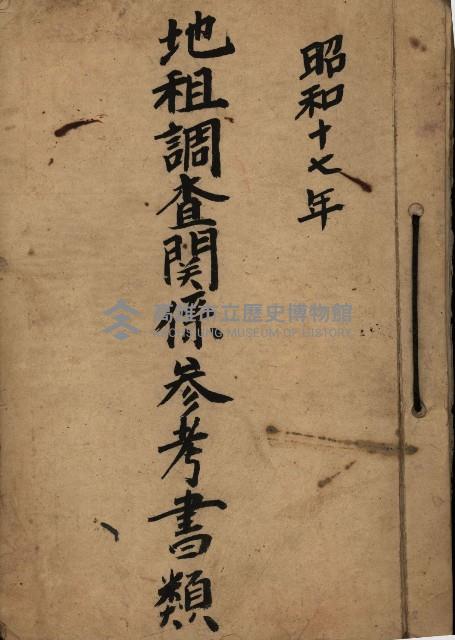 昭和十七年
地租調査関係参考書類
高雄市立歷史博物館
KAOHSIUNG MUSEUM OF HISTORY